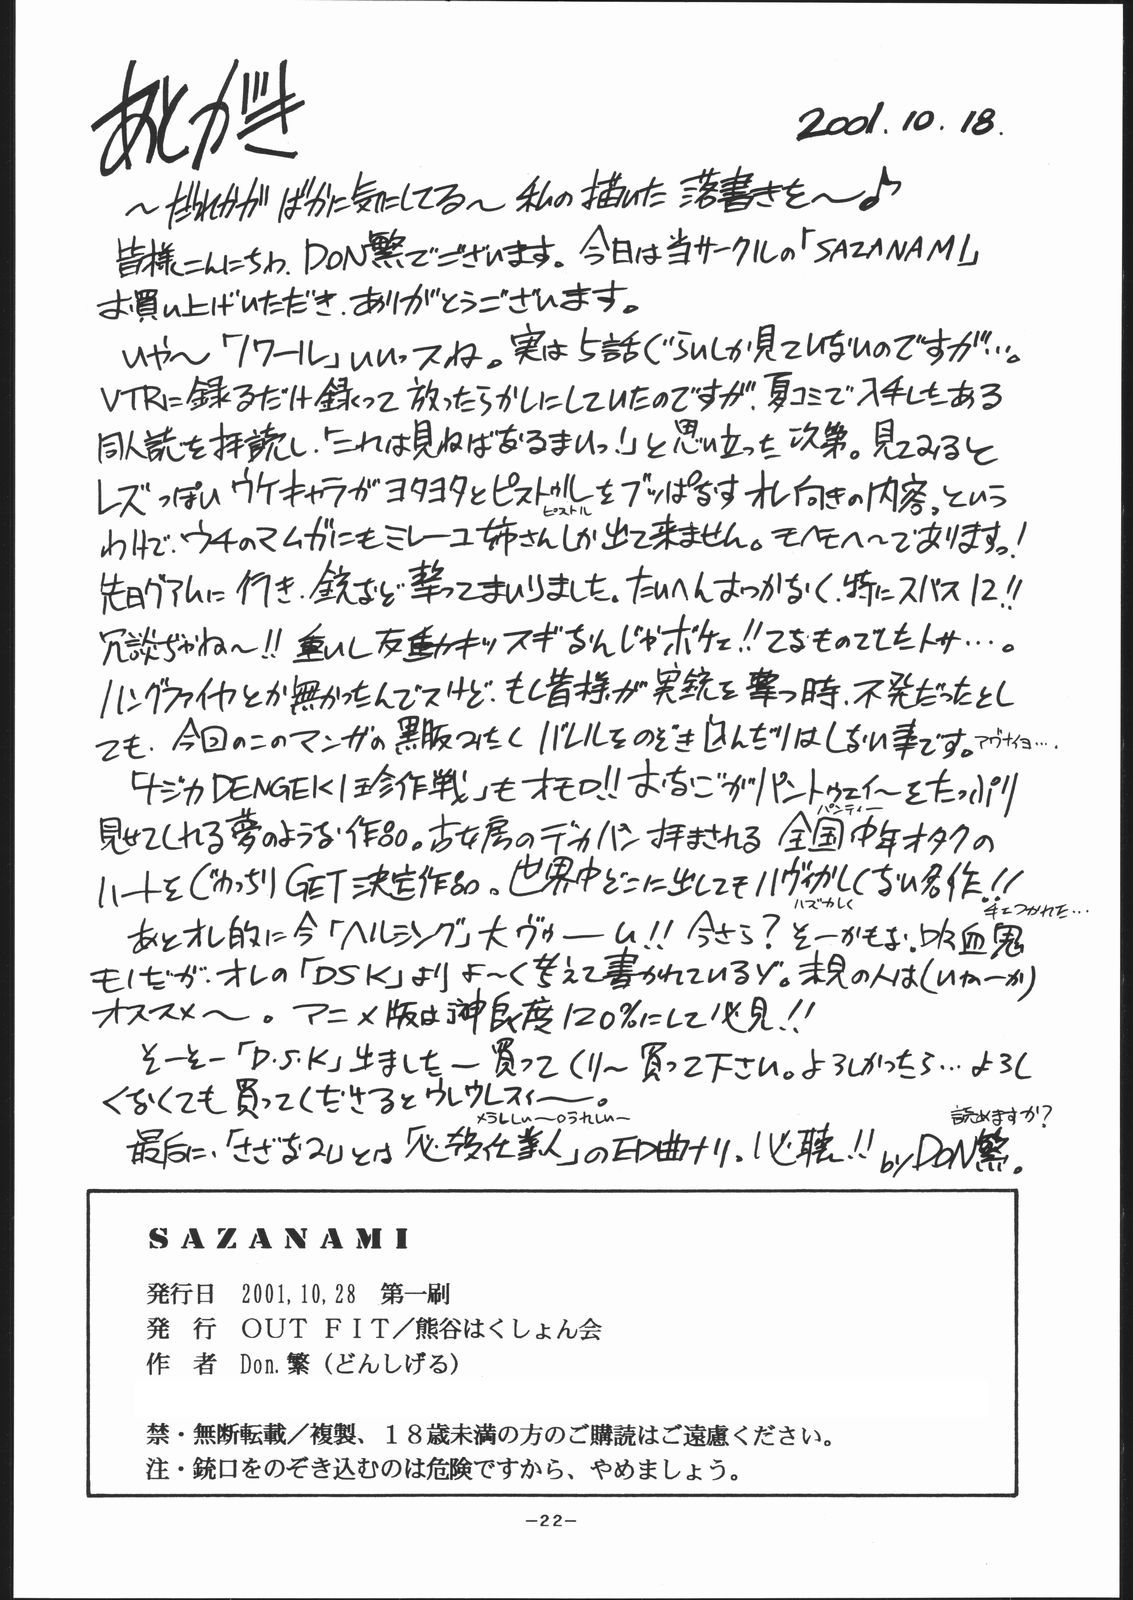 あとがき
2001.10.18.
～だれかが ばかに気にしてる～ 私の描いた 落書きを～♪
皆様こんにちわ、DON繁でございます。今日は当サークルの「SAZANAMI」
お買い上げいただき、ありがとうございます。
いや～「ノワール」いいっスね。実は5話ぐらいしか見ていないのですが…。
VTRに録るだけ録って放ったらかしにしていたのですが、夏コミで入手したある
同人誌を拝読し、「これは見ねばあるまいっ!」と思い立った次第。見てみると
レズっぽいウケキャラがヨタヨタとピストゥルをブッぱなすオレ向きの内容。という
ピストル
わけで、ウチのマムガにもミレーユ姉さんしか出て来ません。モヘモヘ～でありますっ!
先日グアムに行き、銃など撃ってまいりました。たいへんおっかなく、特にスパス12!!
冗談ぢゃね～!! 重いし反動キッスギなんじゃボケェ!!てなものでしたトサ…。
ハングファイヤとか無かったんでスけど、もし皆様が実銃を撃つ時、不発だったとし
ても、今回のこのマンガの黒版みたくバレルをのぞき込んだりはしない事です。アヴナイヨ…。
「ナジカDENGEKI珍作戦」もオモロ!! おなごがパントゥェイ～をたっぷり
パンティー
見せてくれる夢のような作品。古女房のデカパン拝まされる全国中年オタクの
ハートをぐわっちりGET決定作品。世界中どこに出してもハヴィかしくない名作!!
ハズかしく
手ェつかれた…
あとオレ的に今「ヘルシング」大ヴゥーム!! 今さら? そーかもな。吸血鬼
モノだが、オレの「DSK」よりよ～く考えて書かれているゾ。未見の人は(いねーか)
オススメ～。アニメ版は神良度120%にして必見!!
そーそー「D.S.K」出ましたー買ってくり～買って下さい。よろしかったら…よろし
くなくても買ってくださるとウレウレスィ～。
メうれしい～のうれしい～
読めますか?
最后に、「さざなみ」とは「必殺仕業人」のED曲ナリ。必聴!! by DON繁。
SAZANAMI
発行日 2001,10,28 第一刷
発 行 OUT FIT／熊谷はくしょん会
作 者 Don.繁（どんしげる）
禁・無断転載／複製、18歳未満の方のご購読はご遠慮ください。
注・銃口をのぞき込むのは危険ですから、やめましょう。
－22－